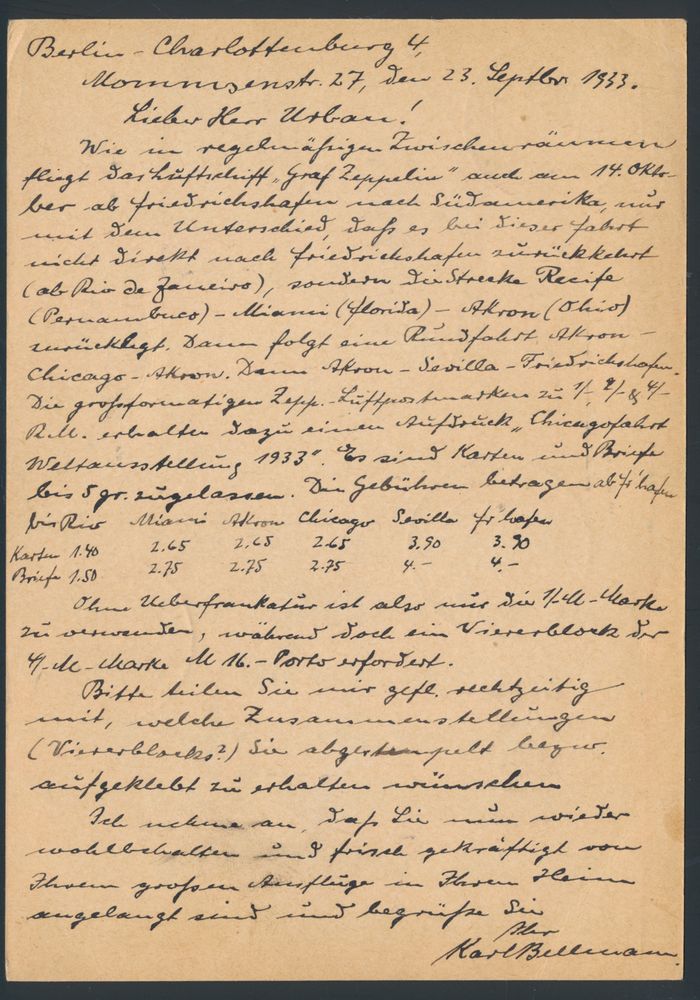 Berlin - Charlottenburg 4,
Mommsenstr. 27, den 23. Septbr 1933.
Lieber Herr Urban!
Wie in regelmäßigen Zwischenräumen
fliegt das Luftschiff „Graf Zeppelin" auch am 14. Okto-
ber ab Friedrichshafen nach Südamerika, nur
mit dem Unterschied, daß es bei dieser Fahrt
nicht direkt nach Friedrichshafen zurückkehrt
(ab Rio de Janeiro), sondern die Strecke Recife
(Pernambuco) - Miami (Florida) - Akron (Ohio)
zurücklegt. Dann folgt eine Rundfahrt Akron -
Chicago - Akron. Dann Akron - Sevilla - Friedrichshafen.
Die großformatigen Zepp.-Luftpostmarken zu 1/-, 2/- & 4/-
R.M. erhalten dazu einen Aufdruck „Chicagofahrt
Weltausstellung 1933". Es sind Karten und Briefe
bis 5 gr. zugelassen. Die Gebühren betragen ab Fr'hafen
bis Rio Miami Akron Chicago Sevilla Fr'hafen
Karten 1.40 2.65 2.65 2.65 3.90 3.90
Briefe 1.50 2.75 2.75 2.75 4.- 4.-
Ohne Ueberfrankatur ist also nur die 1/-M-Marke
zu verwenden, während doch ein Viererblock der
4/-M-Marke M 16.- Porto erfordert.
Bitte teilen Sie mir gefl. rechtzeitig
mit, welche Zusammenstellungen
(Viererblocks?) Sie abgestempelt bezw.
aufgeklebt zu erhalten wünschen
Ich nehme an, daß Sie nun wieder
wohlbehalten und frisch gekräftigt von
Ihrem großen Ausfluge in Ihrem Heim
angelangt sind und begrüße Sie
Ihr
Karl Bellmann.